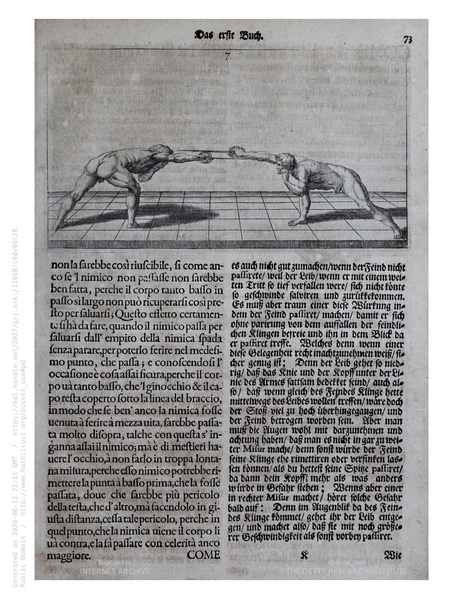 Das erste Buch.
73
7
non la sarebbe così riuscibile, sì come an-
co se 'l nimico non passasse non sarebbe
ben fatta, perche il corpo tanto basso in
passo sì largo non può ricuperarsi così pre-
sto per saluarsi; Questo effetto certamen-
te si hà da fare, quando il nimico passa per
saluarsi dall' empito della nimica spada
senza parare, per poterlo ferire nel medesi-
mo punto, che passa; e conoscendosi l'
occasione è cosa assai sicura, perche il cor-
po uà tanto basso, che'l ginocchio & il ca-
po resta coperto sotto la linea del braccio,
in modo che se ben' anco la nimica fosse
uenuta à ferire à mezza uita, sarebbe passa-
ta molto disopra, talche con questa s' in-
ganna assai il nimico; mà è di mestieri ha-
uere l' occhio, à non farlo in troppa lonta-
na misura, perche esso nimico potrebbe ri-
mettere la punta à basso prima, che la fosse
passata, doue che sarebbe più pericolo
della testa, che d'altro, mà facendolo in gi-
usta distanza, cessa tale pericolo, perche in
quel punto, che la nimica uiene il corpo li
uà contra, e la fà passare con celerità anco
maggiore. COME
es auch nicht gut zumachen/ wenn der Feind nicht
passirete/ weil der Leib/ wenn er mit einem wei-
ten Tritt so tief verfallen were/ sich nicht könte
so geschwinde salviren und zurückekommen.
Es muß aber traun einer diese Würkung in-
dem der Feind passiret/ machen/ damit er sich
ohne parirung von dem auffallen der feindli-
chen Klingen befreie und ihn in dem Blick da
er passiret treffe. Welches denn wenn einer
diese Gelegenheit recht inacht zunehmen weiß/ si-
cher genug ist; Denn der Leib gehet so nied-
rig/ daß das Knie und der Kopff unter der Li-
nie des Armes sattsam bedecket sind/ auch al-
so/ daß wenn gleich des Feindes Klinge hette
mittelweges des Leibes wollen treffen/ wäre doch
der Stoß viel zu hoch überhingegangen/ und
der Feind betrogen worden sein. Aber man
muß die Augen wohl mit darzunehmen und
achtung haben/ daß man es nicht in gar zu wei-
ter Misur mache/ denn sonst würde der Feind
seine Klinge ehe rimettiren oder versinken las-
sen können/ als du hettest seine Spitze passiret/
da dann dein Kopff mehr als was anders
würde in Gefahr stehen; Wenns aber einer
in rechter Misur machet/ höret solche Gefahr
bald auf: Denn im Augenblik da des Fein-
des Klinge kommet/ gehet ihr der Leib entge-
gen/ und machet also/ daß sie mit noch größe-
rer Geschwindigkeit als sonst vorbey passiret.
K Wie
Generated on 2020-06-12 22:14 GMT
Public Domain
INTERNET ARCHIVE
THE GETTY RESEARCH INSTITUTE